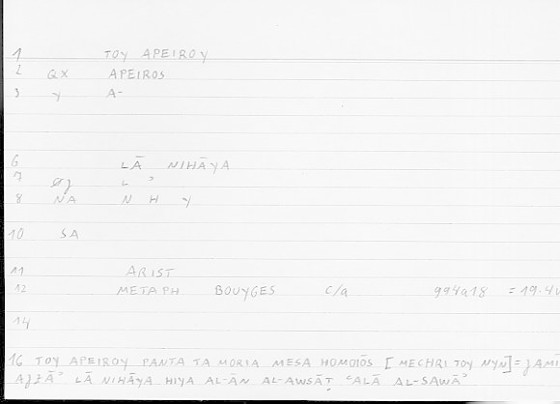 1 TOY APEIROY
2 QX APEIROS
3 Y A-
6 LĀ NIHĀYA
7 L ʾ
8 NA N H Y
10 SA
11 ARIST
12 METAPH BOUYGES C/a 994a18 = 19.4
14
16 TOY APEIROY PANTA TA MORIA MESA HOMOIŌS [MECHRI TOY NYN] = ǦAMĪ
AǦZĀʾ LĀ NIHĀYA HIYA AL-ĀN AL-AWSĀṬ ʿALĀ AL-SAWĀʾ